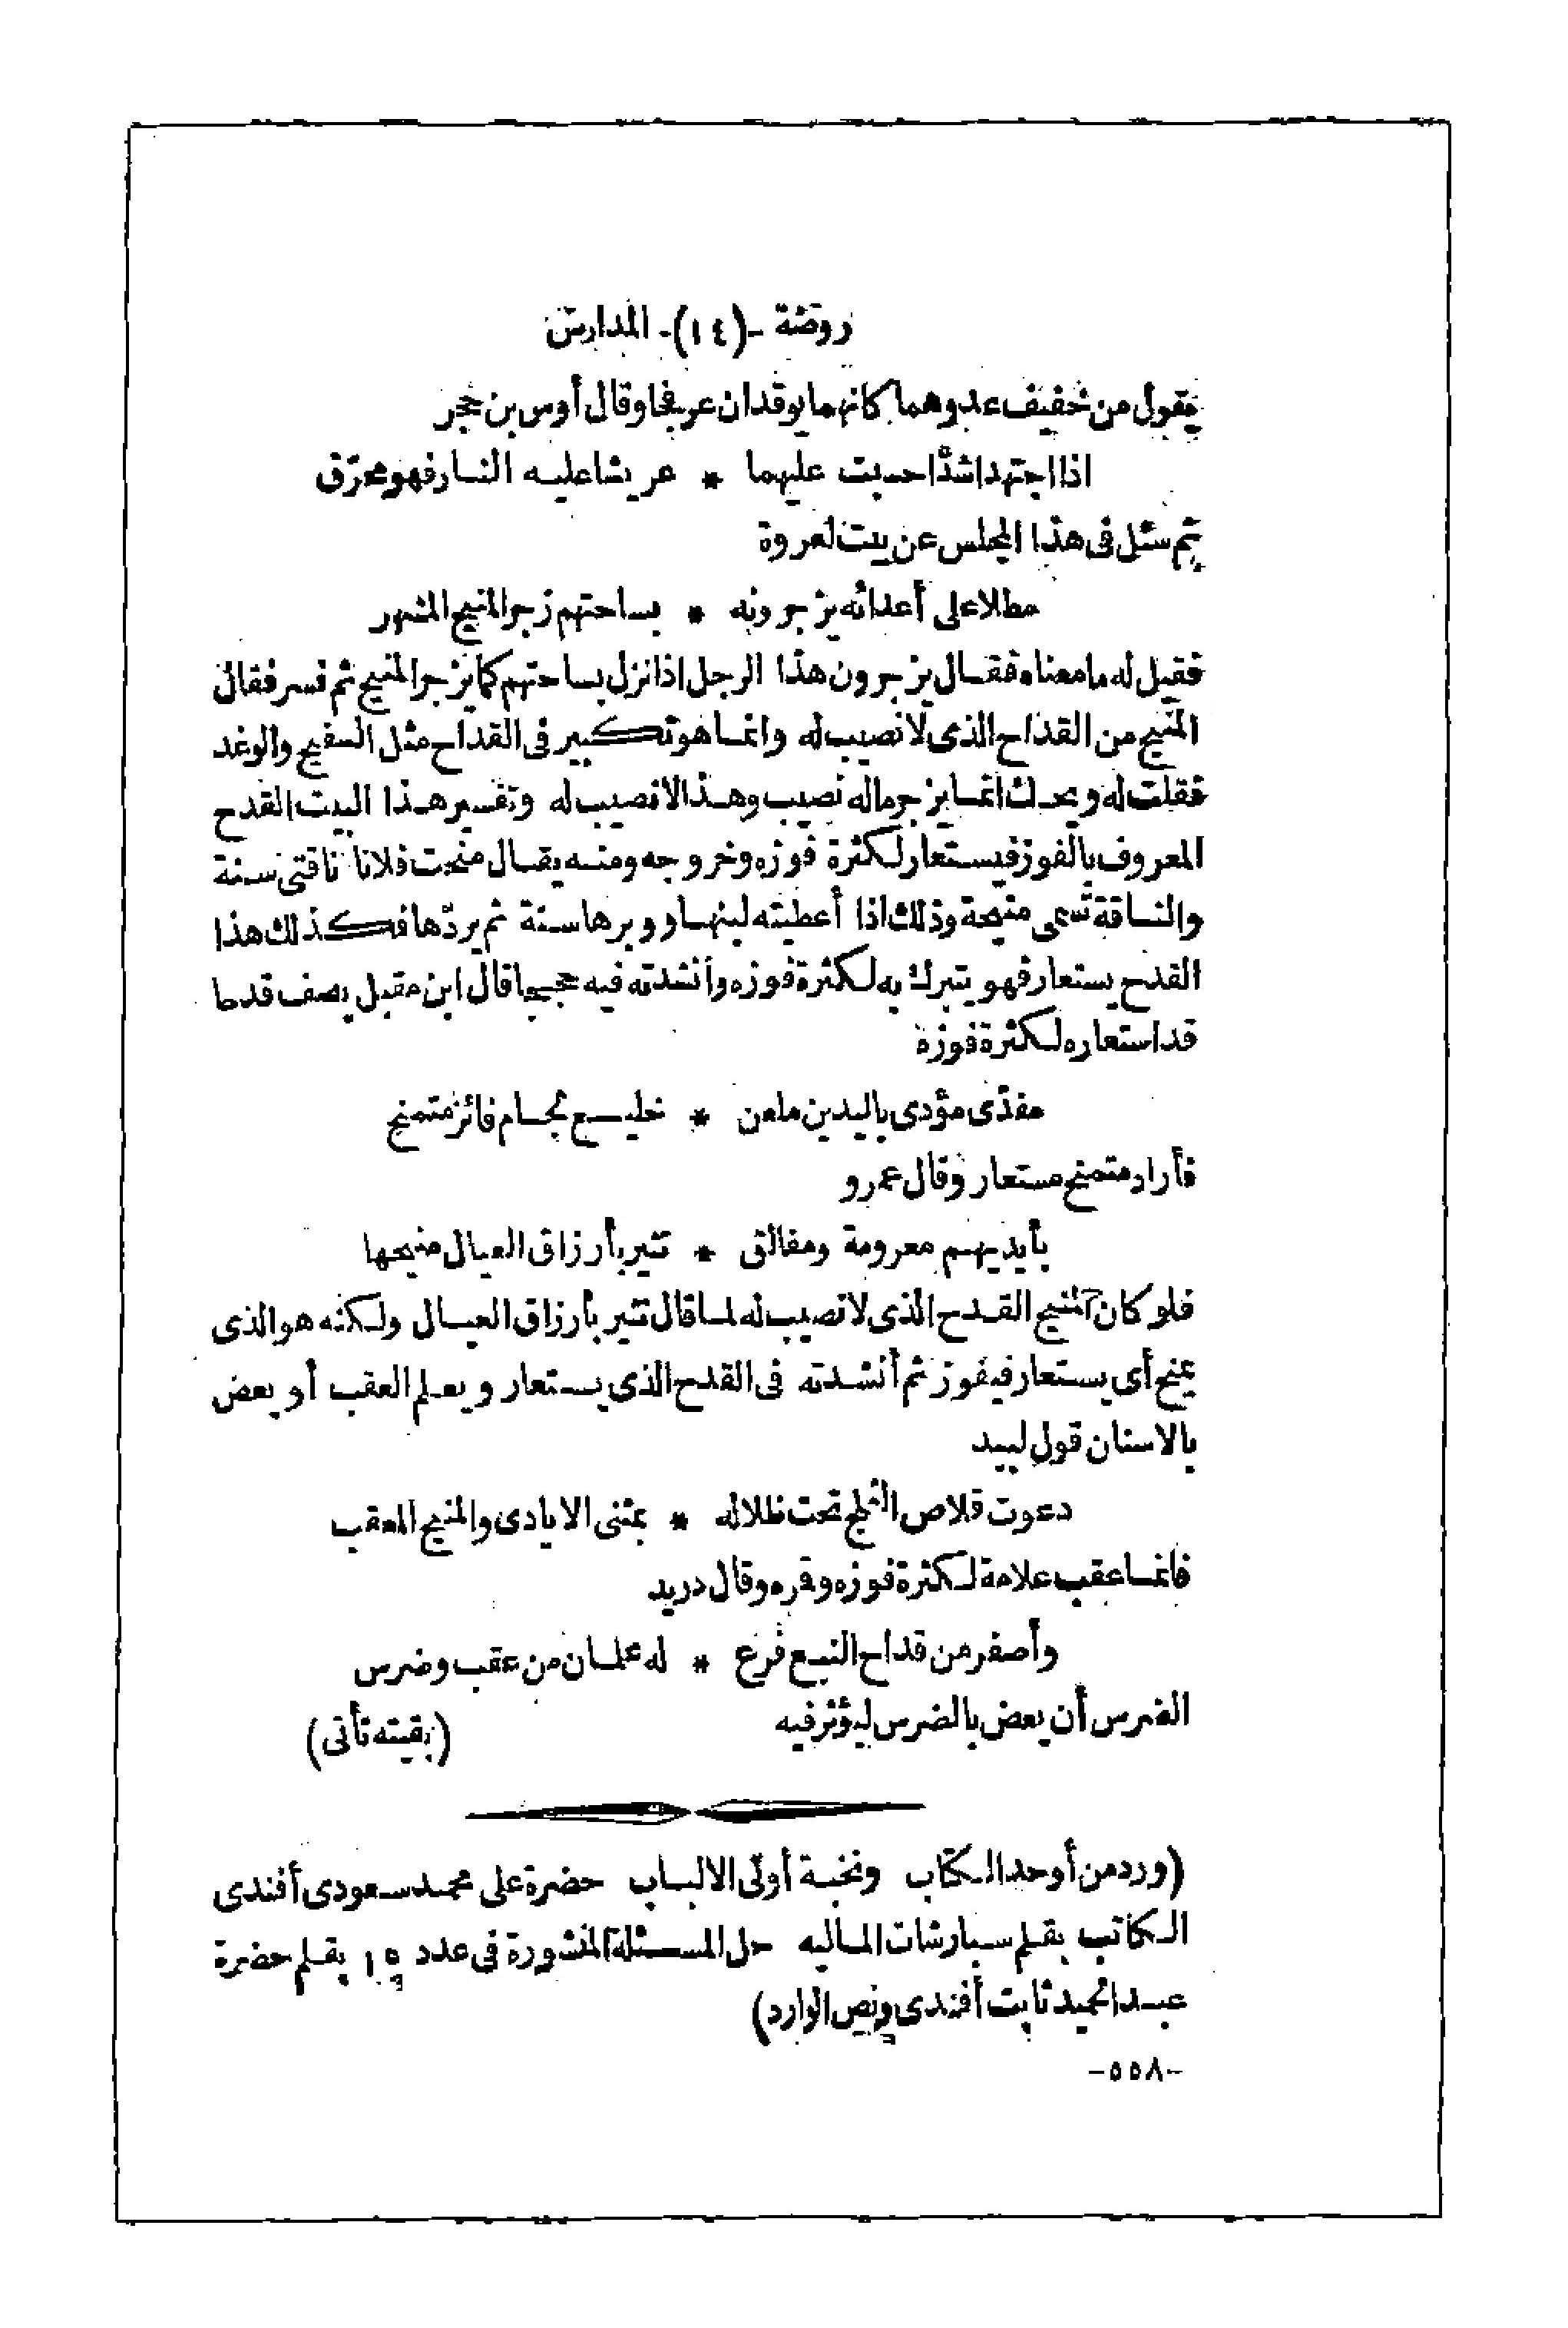 روضة -(١٤)- المدارس
يقول من خفيف عدوهما كانهما يوقدان عرفجا وقال أوس بن حجر
اذا اجتهدا شدّا حسبت عليهما * عريشا عليه النار فهو محرّق
ثم سئل فى هذا المجلس عن بيت لعروة
مطلا على أعدائه يزجرونه * بساحتهم زجر المنيح المشهر
فقيل له ما معناه فقال يزجرون هذا الرجل اذا نزل بساحتهم كما يزجر المنيح ثم فسر فقال
المنيح من القداح الذى لا نصيب له وانما هو تكبير فى القداح مثل السفيح والوغد
فقلت له ويحك انما يزجر ماله نصيب وهذا لا نصيب له وتفسير هذا البيت القدح
المعروف بالفوز فيستعار لكثرة فوزه وخروجه ومنه يقال منحت فلانا ناقتى سنة
والناقة تسمى منيحة وذلك اذا أعطيته لبنها ووبرها سنة ثم يردّها فكذلك هذا
القدح يستعار فهو يتبرك به لكثرة فوزه وأنشدته فيه حججا قال ابن مقبل يصف قدحا
قد استعاره لكثرة فوزه
مفدّى مؤدى باليدين ملعن * خليع لجام فائز متمنح
فأراد متمنح مستعار وقال عمرو
بأيديهم معرومة ومغالق * تثير بأرزاق العيال منيحها
فلو كان المنيح القدح الذى لا نصيب له لما قال تثير بأرزاق العيال ولكنه هو الذى
يمنح أى يستعار فيفوز ثم أنشدته فى القدح الذى يستعار ويعلم العقب أو يعض
بالاسنان قول لبيد
دعوت قلاص الثلج تحت ظلاله * بمثنى الايادى والمنيح المعقب
فانما عقب علامة لكثرة فوزه وقره وقال دريد
وأصفر من قداح النبع فرع * له علمان من عقب وضرس
الضرس أن يعض بالضرس ليؤثر فيه (بقيته تأتى)
(ورد من أوحد الكتاب ونخبة أولى الالباب حضرة على محمد سعودى أفندى
الكاتب بقلم سبارشات الماليه حل المسئلة المنشورة فى عدد ١٥ بقلم حضرة
عبد الحميد ثابت أفندى ونص الوارد)
-٥٥٨-